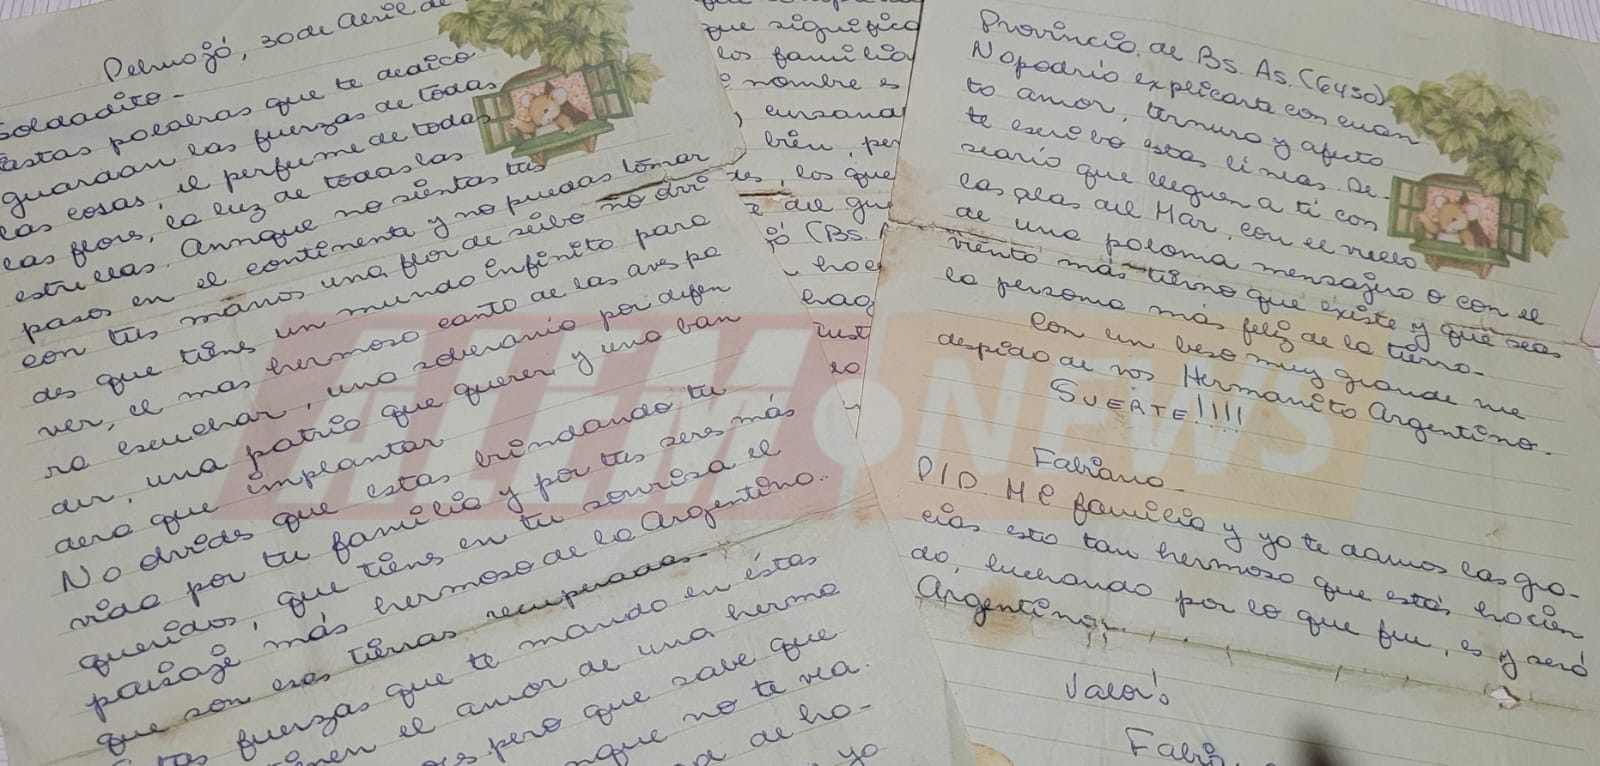 30 de Abril de
Soldadito -
Estas palabras que te dedico
guardan las fuerzas de todas
las cosas, el perfume de todas
las flores, la luz de todas las
estrellas. Aunque no sientas tus
pasos en el continente y no puedas tomar
con tus manos una flor de seibo no olvi
des que tienes un mundo infinito para
ver, el mas hermoso canto de las aves pa
ra escuchar, una soberania por defen
der, una patria que querer y una ban
dera que implantar
No olvides que estas brindando tu
vida por tu familia y por tus seres más
queridos, que tienes en tu sonrisa el
paisaje más hermoso de la Argentina.
que son esas tierras recuperadas -
fuerzas que te mando en éstas
el amor de una herma
pero que sabe que
no te vea.
de ho-
yo
que signific
los familia
nombre es
cursand
bién, per
des, los que
del gu
(Bs.
hoc
hag
Provincia de Bs. As. (6430).
No podria explicarte con cuan
to amor, ternura y afecto
te escribo estas lineas. De-
searia que lleguen a ti con
las olas del Mar, con el vuelo
de una paloma mensajera o con el
viento más tierno que existe y que seas
la persona más feliz de la tierra.
Con un beso muy grande me
despido de vos Hermanito Argentino.
SUERTE!!!!
Fabiana -
P/D. Mi familia y yo te damos las gra-
cias esto tan hermoso que estás hacien
do, luchando por lo que fue, es y será
Argentina.
Valor's
Fabi
ALEM NEWS